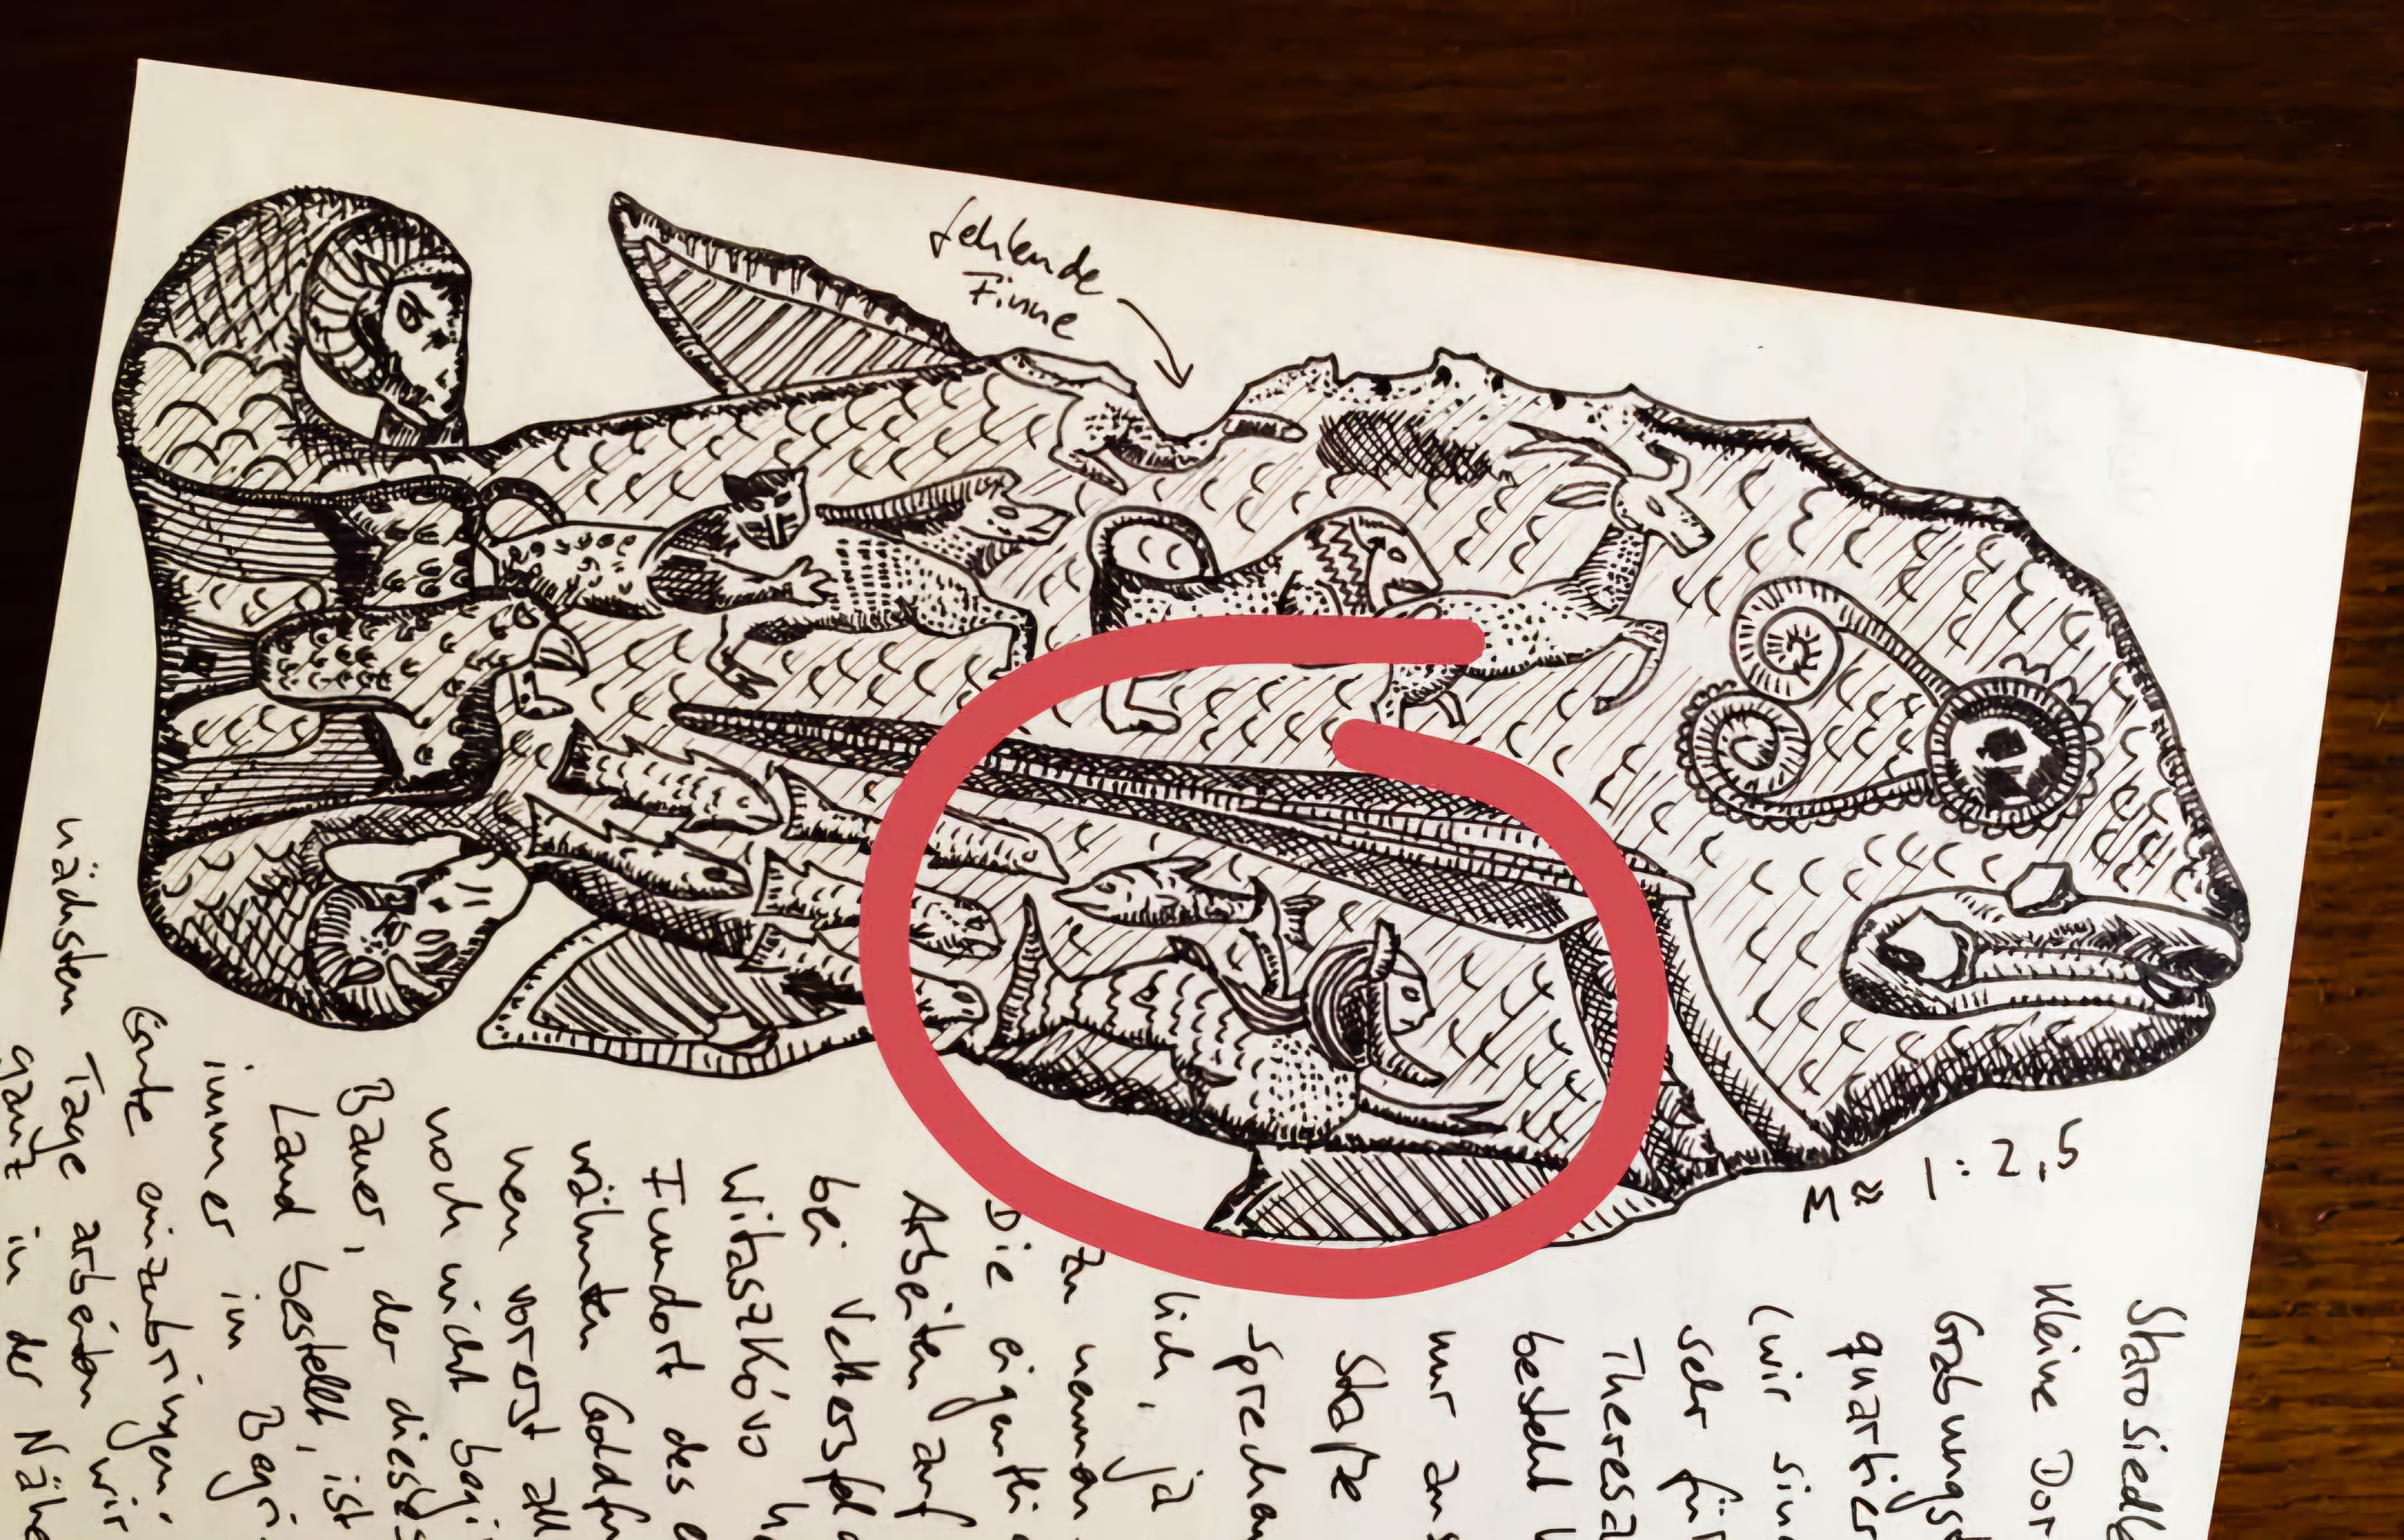 fehlende
Finne
M ≈ 1:2,5
Starosiedl
Kleine Dor
Grabungst
quartier
(wir sind
sehr für
Theresa
besteht
nur aus
sprechen
lich, ja
zu nennen
Die eigentli
Arbeiten auf
bei Vettersfel
Witaszkóvo h
Fundort des e
wähnten Goldfu
nen vorerst all
noch nicht begi
Bauer, der dieses
Land bestellt, ist
immer im Begri
Ernte einzubringen.
nächsten Tage arbeiten wir
ganz in der Nähe